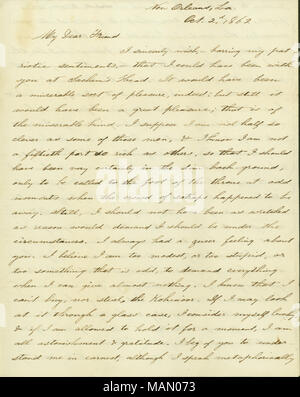 New Orleans, La.
Oct. 2d, 1862
My Dear Friend
I sincerely wish, barring my pat
riotic sentiments, that I could have been with
you at Sachem's Head. It would have been
a miserable sort of pleasure, indeed; but still it
would have been a great pleasure, that is of
the miserable kind. I suppose I am not half so
clever as some of those men, & I know I am not
a fiftieth part so rich as others, so that I should
have been very certainly in the dim back ground,
only to be called to the foot of the throne at odd
moments when the crowd of satraps happened to be
away. Still, I should not have been as wretched
as reason would demand I should be under the
circumstances. I always had a queer feeling about
you. I believe I am too modest, or too stupid, or
too something that is odd, to demand everything
when I can give almost nothing. I know that I
can't buy, nor steal, the Kohinoor. If I may look
at it through a glass case, I consider myself lucky
& if I am allowed to hold it for a moment, I am
all astonishment & gratitude. I beg of you to under
stand me in earnest, although I speak metaphorically
alamy
MAN073